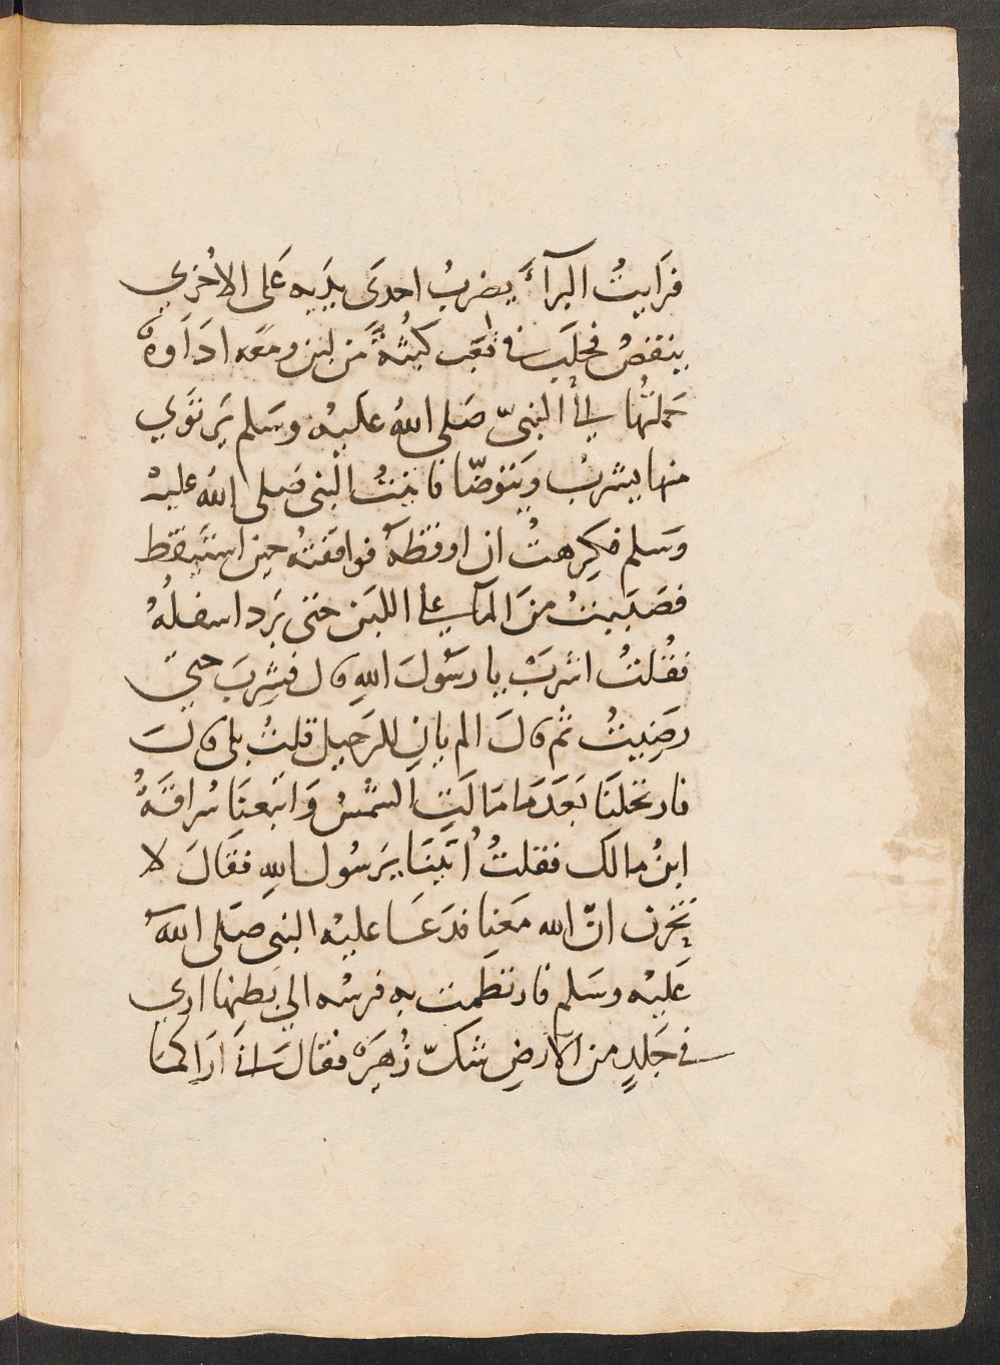 فَرَايتُ البرآءَ يضربُ احدَى يدَيه عَلى الاُخري
ينفضُ فحلَبَ في قعَب كُثبةً من لبن ومعَه ادَاوة
حملتُها للنبىّ صَلى اللهُ عليْه وسَلم يَرتوي
منها يشربُ ويَتوضّا فاتيتُ النبى صَلى الله عليْه
وَسَلم فكرِهتُ ان اوقظهُ فوافقتهُ حين استيقظ
فصَبَبتُ منَ المآء علي اللبَن حتى بَرد اسفلُهُ
فقُلتُ اشربْ يا رسُولَ اللهِ قال فشرِبَ حتيّ
رضِيتُ ثم قالَ الم يانِ للرَحيل قلتُ بلى قالَ
فارتحلنَا بَعدَما مَالَتِ الشمْسُ وَاتبعنَا سُراقَةُ
ابنُ مالك فقلتُ اُتينَا يَرسُول اللهِ فقَالَ لا
تحزن انّ الله مَعنا فدَعَا عليْه النبى صَلى الله
عَليْه وسَلم فارتطمت به فرسُه الي بَطنها اري
في جَلدٍ من الارضِ شكّ زُهَيرٌ فقال انى اُرَاكما